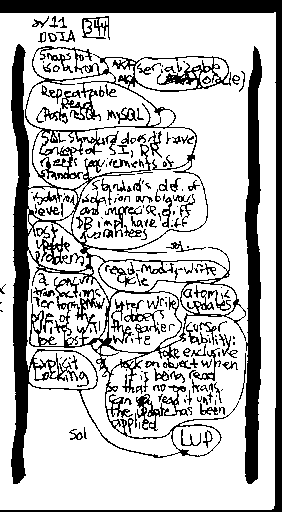 DDIA 344
Snapshot
isolation AKA serializable
AKA (Oracle)
Repeatable
Read
(Postgres, MySQL)
SQL standard doesn't have
concept of SI, RR
meets requirements of
standard
isolation
level
Standard's def. of
isolation ambiguous
and imprecise, diff
DB impl. have diff
guarantees
lost
update
problem
read-modify-write
cycle
2 concurr
transactions
one of the
writes will
be lost
later write
clobbers
the earlier
write
atomic
updates
cursor
stability:
take exclusive
lock on object when
it is being read
so that no
can read it until
the update has been
applied
Explicit
Locking
Sol